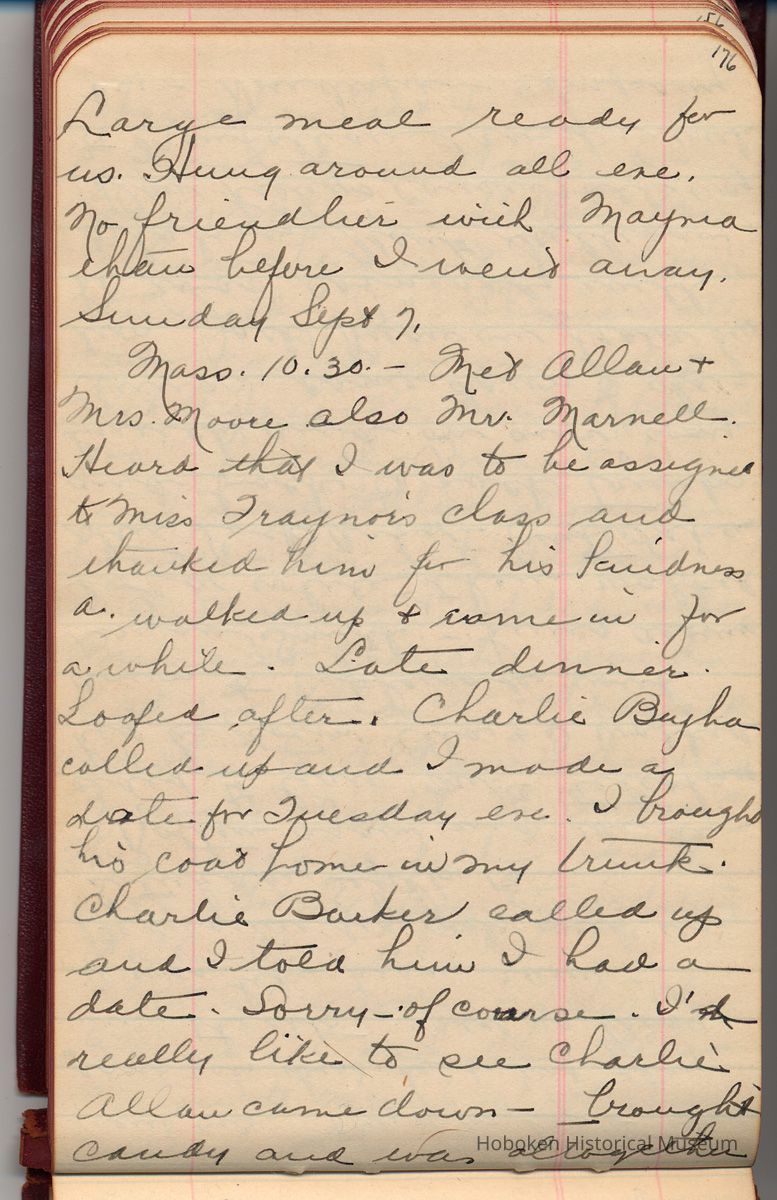 156
176
Large meal ready for
us. Hung around all eve.
No friendlier with Mayma
than before I went away.
Sunday Sept 7,
Mass. 10.30. - Met Allan +
Mrs. Moore also Mr. Marnell.
Heard that I was to be assigned
to Miss Traynor's class and
thanked him for his kindness
A. walked up & came in for
a while. Late dinner.
Loafed after. Charlie
called up and I made a
date for Tuesday eve. I brought
his coat home in my trunk.
Charlie Barker called up
and I told him I had a
date. Sorry - of course. I'd
really like to see Charlie
Allan came down - brought
candy and was
Hoboken Historical Museum